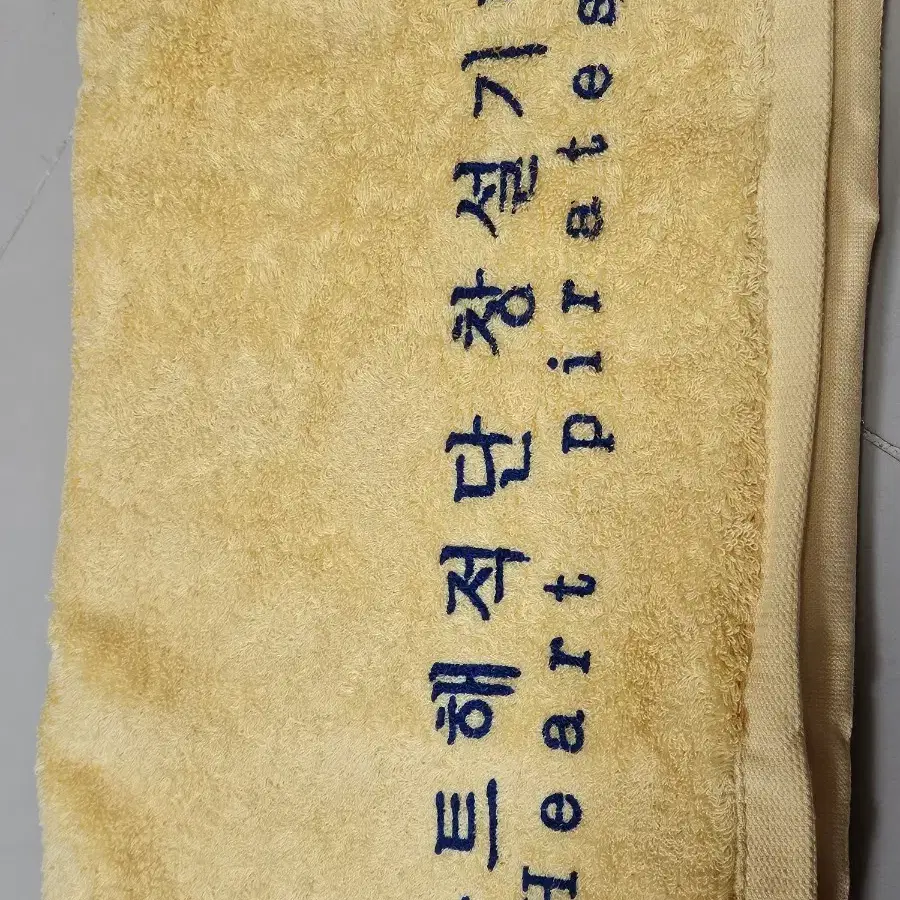 트해적단 창설기
Heart pirates